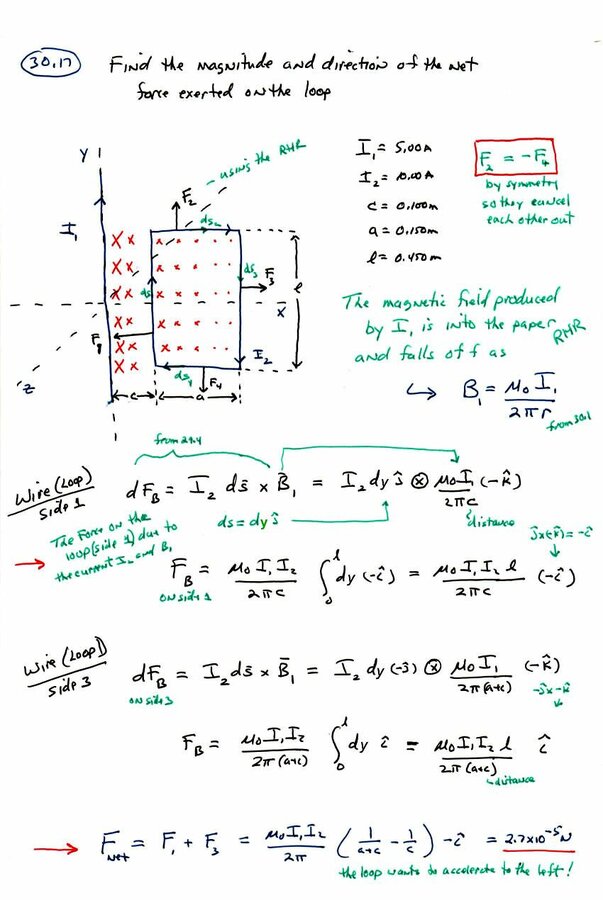 30.17 Find the magnitude and direction of the net
force exerted on the loop
Y
using the RHR
F₂
ds₂
I₁
ds₁
ds₃
F₃
l
x
F₁
I₂
z
ds₄
F₄
c
a
I₁ = 5.00A
I₂ = 10.00A
c = 0.100m
a = 0.150m
l = 0.450m
F₂ = -F₄
by symmetry
so they cancel
each other out
The magnetic field produced
by I₁ is into the paper RHR
and falls off as
↳ B₁ = μ₀I₁/2πr
from 30.1
from 29.4
Wire (Loop) Side 1 dF_B = I₂ ds̄ × B̄₁ = I₂ dy ĵ ⊗ μ₀I₁/2πc (-k̂)
ds = dy ĵ
distance
ĵx(-k̂) = -î
The Force on the
loop (side 1) due to
the current I₂ and B₁
F_B = μ₀I₁I₂/2πc ∫₀ˡ dy (-î) = μ₀I₁I₂l/2πc (-î)
on side 1
Wire (Loop) side 3 dF_B = I₂ ds̄ × B̄₁ = I₂ dy (-ĵ) ⊗ μ₀I₁/2π(a+c) (-k̂)
on side 3
-ĵx-k̂
F_B = μ₀I₁I₂/2π(a+c) ∫₀ˡ dy î = μ₀I₁I₂l/2π(a+c) î
distance
→ F_net = F₁ + F₃ = μ₀I₁I₂/2π (1/a+c - 1/c) -î = 2.7x10⁻⁵N
the loop wants to accelerate to the left!